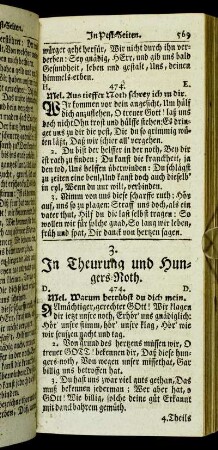 In Pest-Zeiten. 569
würger geht herfür, Wir nicht durch ihn verderben: Sey gnädig, HErr, und gib uns bald
Gesundheit, leben und gestalt, Uns, deinen
himmels-erben.
H. 474. E.
Mel. Aus tieffer Noth schrey ich zu dir.
WIr kommen vor dein angesicht, Um hülf
dich anzustehen, O treuer GOtt! laß uns
doch nicht Ohn trost und hülffe stehen: Es dringet uns zu dir die pest, Die du so grimmig
wüten läst, Daß wir schier all' vergehen.
2. Du bist der helfer in der noth, Bey dir
ist rath zu finden: Du kanst die kranckheit, ja
den tod,
3. Nimm von uns diese scharfe ruth: Hör
auf,
wollen wir für solche gnad, So lang wir leben,
früh und spat, Dir danck von hertzen sagen.
3.
In Theurung und Hungers-Noth.
D. 474. D.
Mel. Warum betrübst du dich mein.
ALlmächtiger, gerechter GOtt! Wir klagen
dir jetzt unsre noth, Erhör uns gnädiglich:
Hör unsre stimm, hör' unsre klag, Hör' wie
wir seufzen nacht und tag.
2. Von grund des hertzens müssen wir, O
treuer GOTT! bekennen dir, Daß diese hungers-noth, Wir wegen unser missethat, Gar
billig uns betroffen hat.
3. Du hast uns zwar viel guts gethan, Das
muß bekennen jederman: Wer aber hat, o
GOtt! Wie billig, solche deine güt Erkannt
mit danckbahrem gemüth.
4. Theils